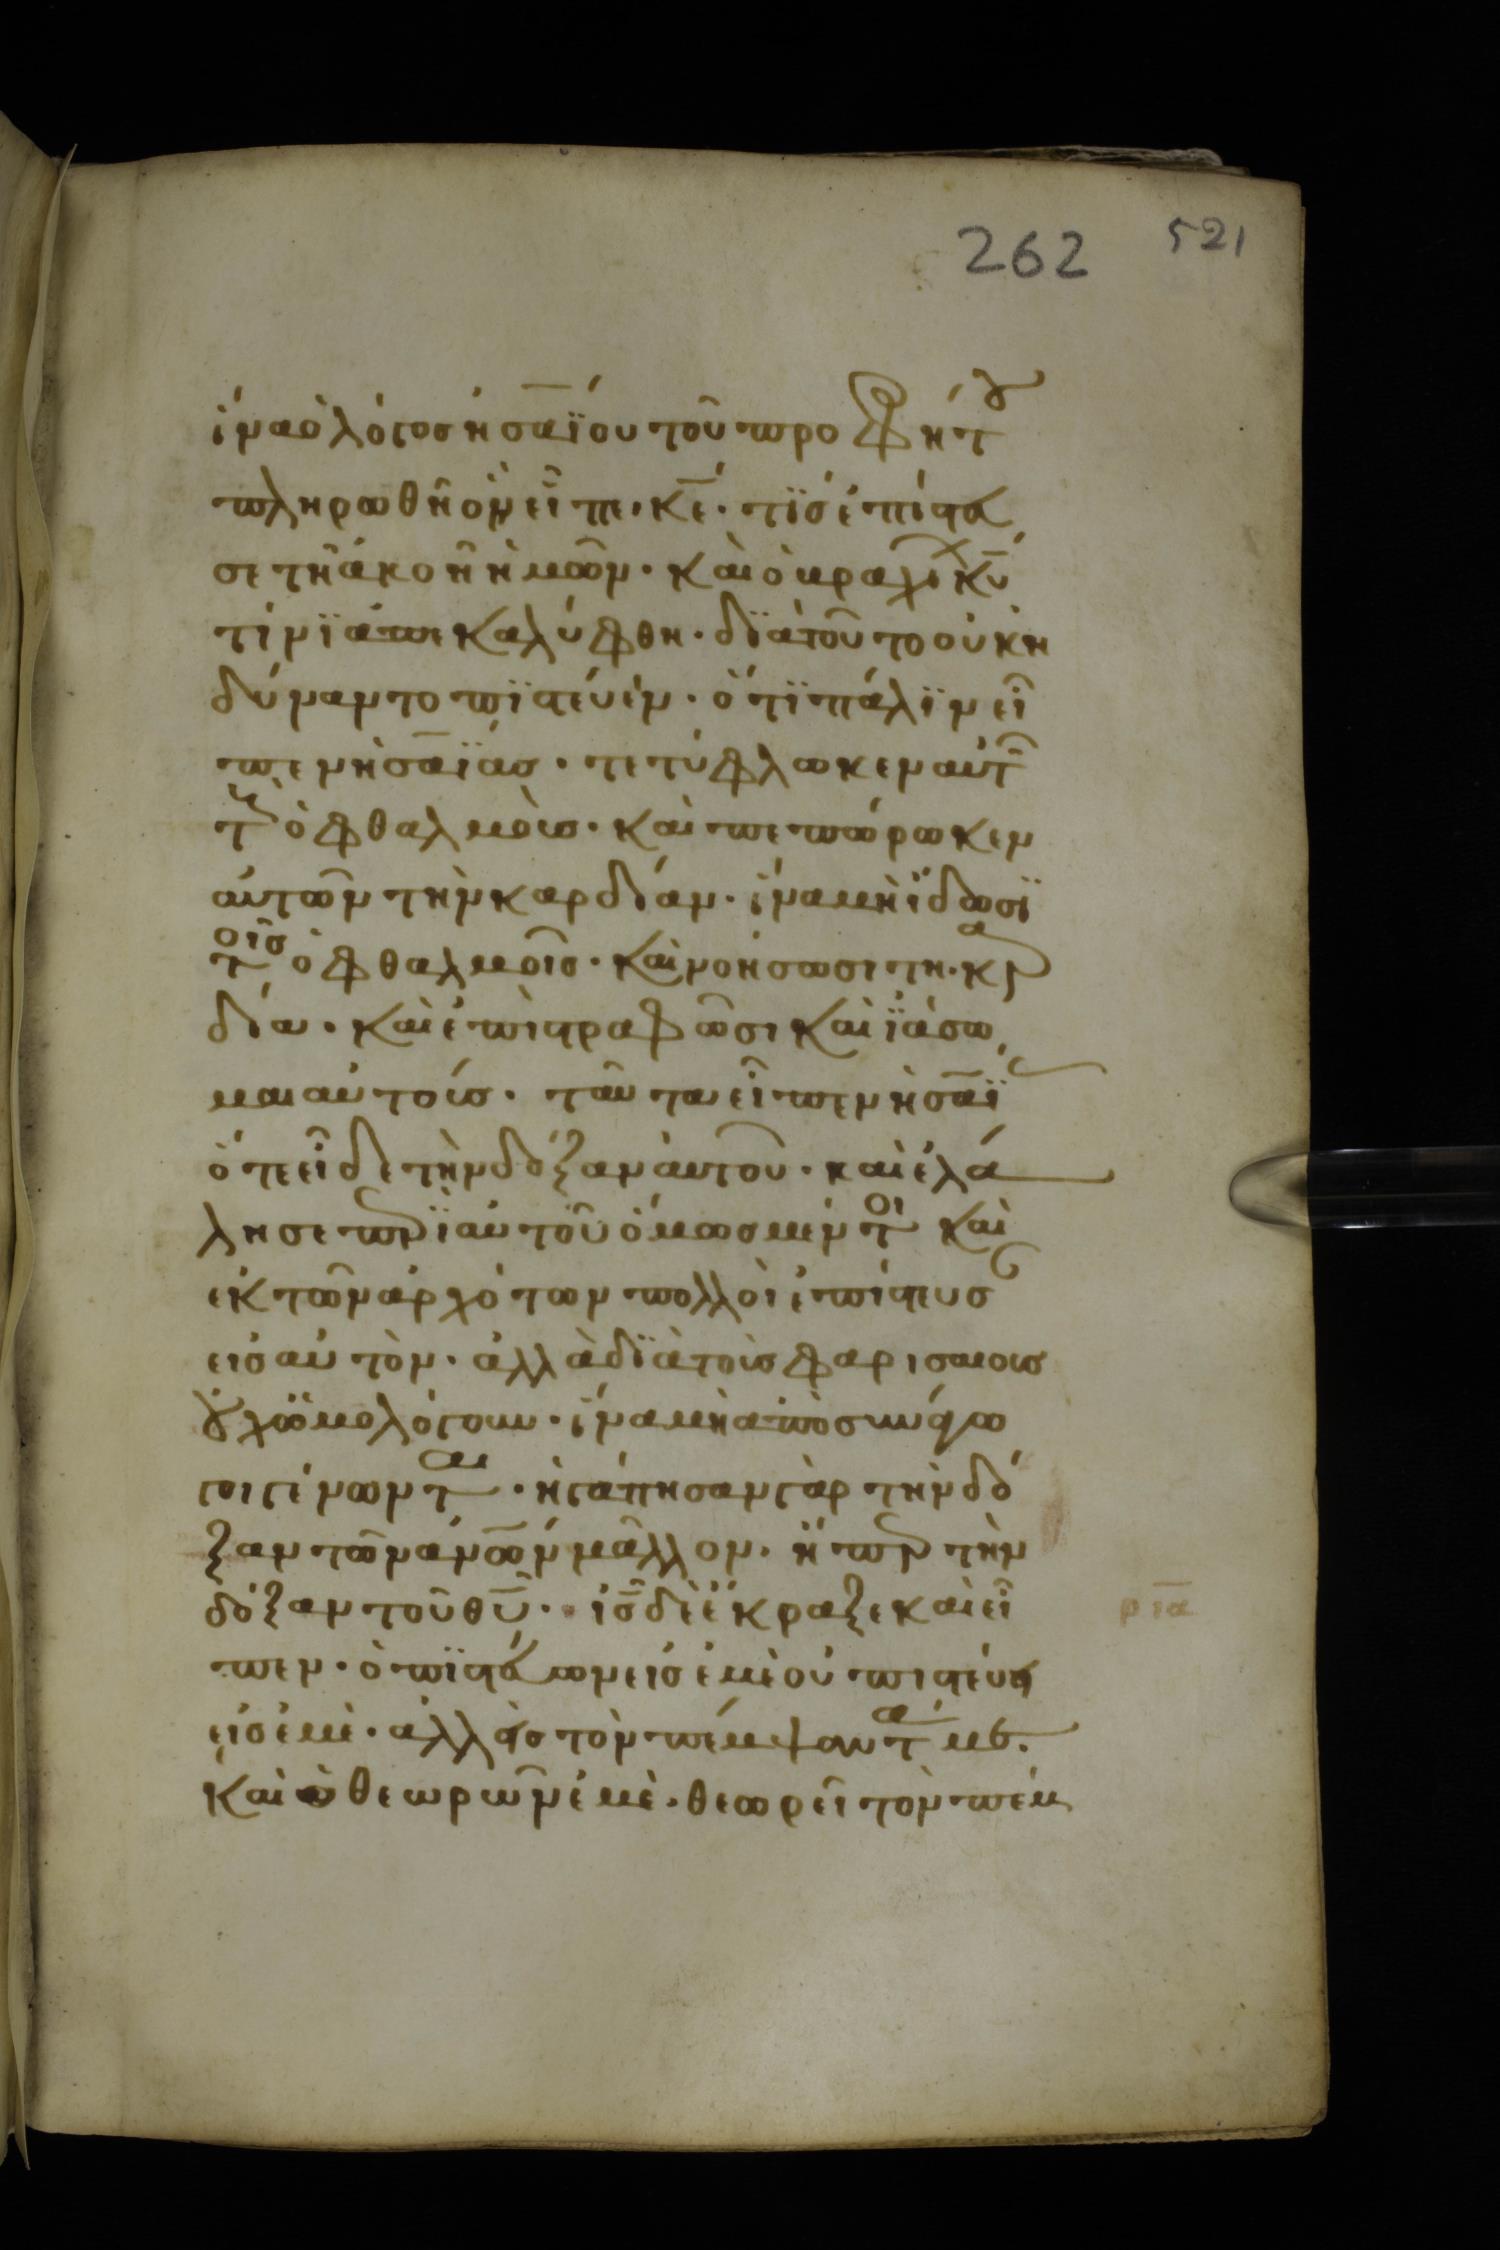 262 521
ἵνα ὁ λόγος ἡσαΐου τοῦ προφήτου
πληρωθῆ ὃν εἶπε· κε̅· τΐς ἐπίστευ
σε τῆ ἀκοῆ ἡμῶν· καὶ ὁ βραχίων κυ̅
τίνϊ ἀπεκαλύφθη· δϊὰ τοῦτο οὐκ ἠ
δύναντο πϊστεύειν· ὅτϊ πάλϊν εἶ
πεν ἡσαΐας· τετύφλωκεν αὐτῶν
τοὺς ὀφθαλμοὺς· καὶ πεπώρωκεν
αὐτῶν τὴν καρδίαν· ἵνα μὴ ἴδωσϊ
τοῖς ὀφθαλμοῖς· καὶ νοήσωσι τῆ καρ
δία· καὶ ἐπιστραφῶσι καὶ ἰάσω
μαι αὐτούς· ταῦτα εἶπεν ἡσαΐας
ὅτε εἶδε τὴν δόξαν αὐτοῦ· καὶ ἐλά
λησε περῒ αὐτοῦ ὅμως μέντοι καὶ
ἐκ τῶν ἀρχόντων πολλοὶ ἐπίστευσαν
εἰς αὐτὸν· ἀλλὰ δϊὰ τοὺς φαρισαιους
οὐχ ὡμολόγουν· ἵνα μὴ ἀποσυνάγω
γοι γένωνται· ἠγάπησαν γὰρ τὴν δό
ξαν τῶν ἀνων̅ μᾶλλον· ἤπερ τὴν
δόξαν τοῦ θυ̅· ις̅ δὲ ἔκραξε καὶ εἶ
πεν· ὁ πϊστεύων εἰς ἐμὲ οὐ πιστεύει
εἰς ἐμὲ· ἀλλ᾽ εἰς τὸν πέμψαντά με.
καὶ ὁ θεωρῶν ἐμὲ· θεωρεῖ τὸν πέμ
ρια̅